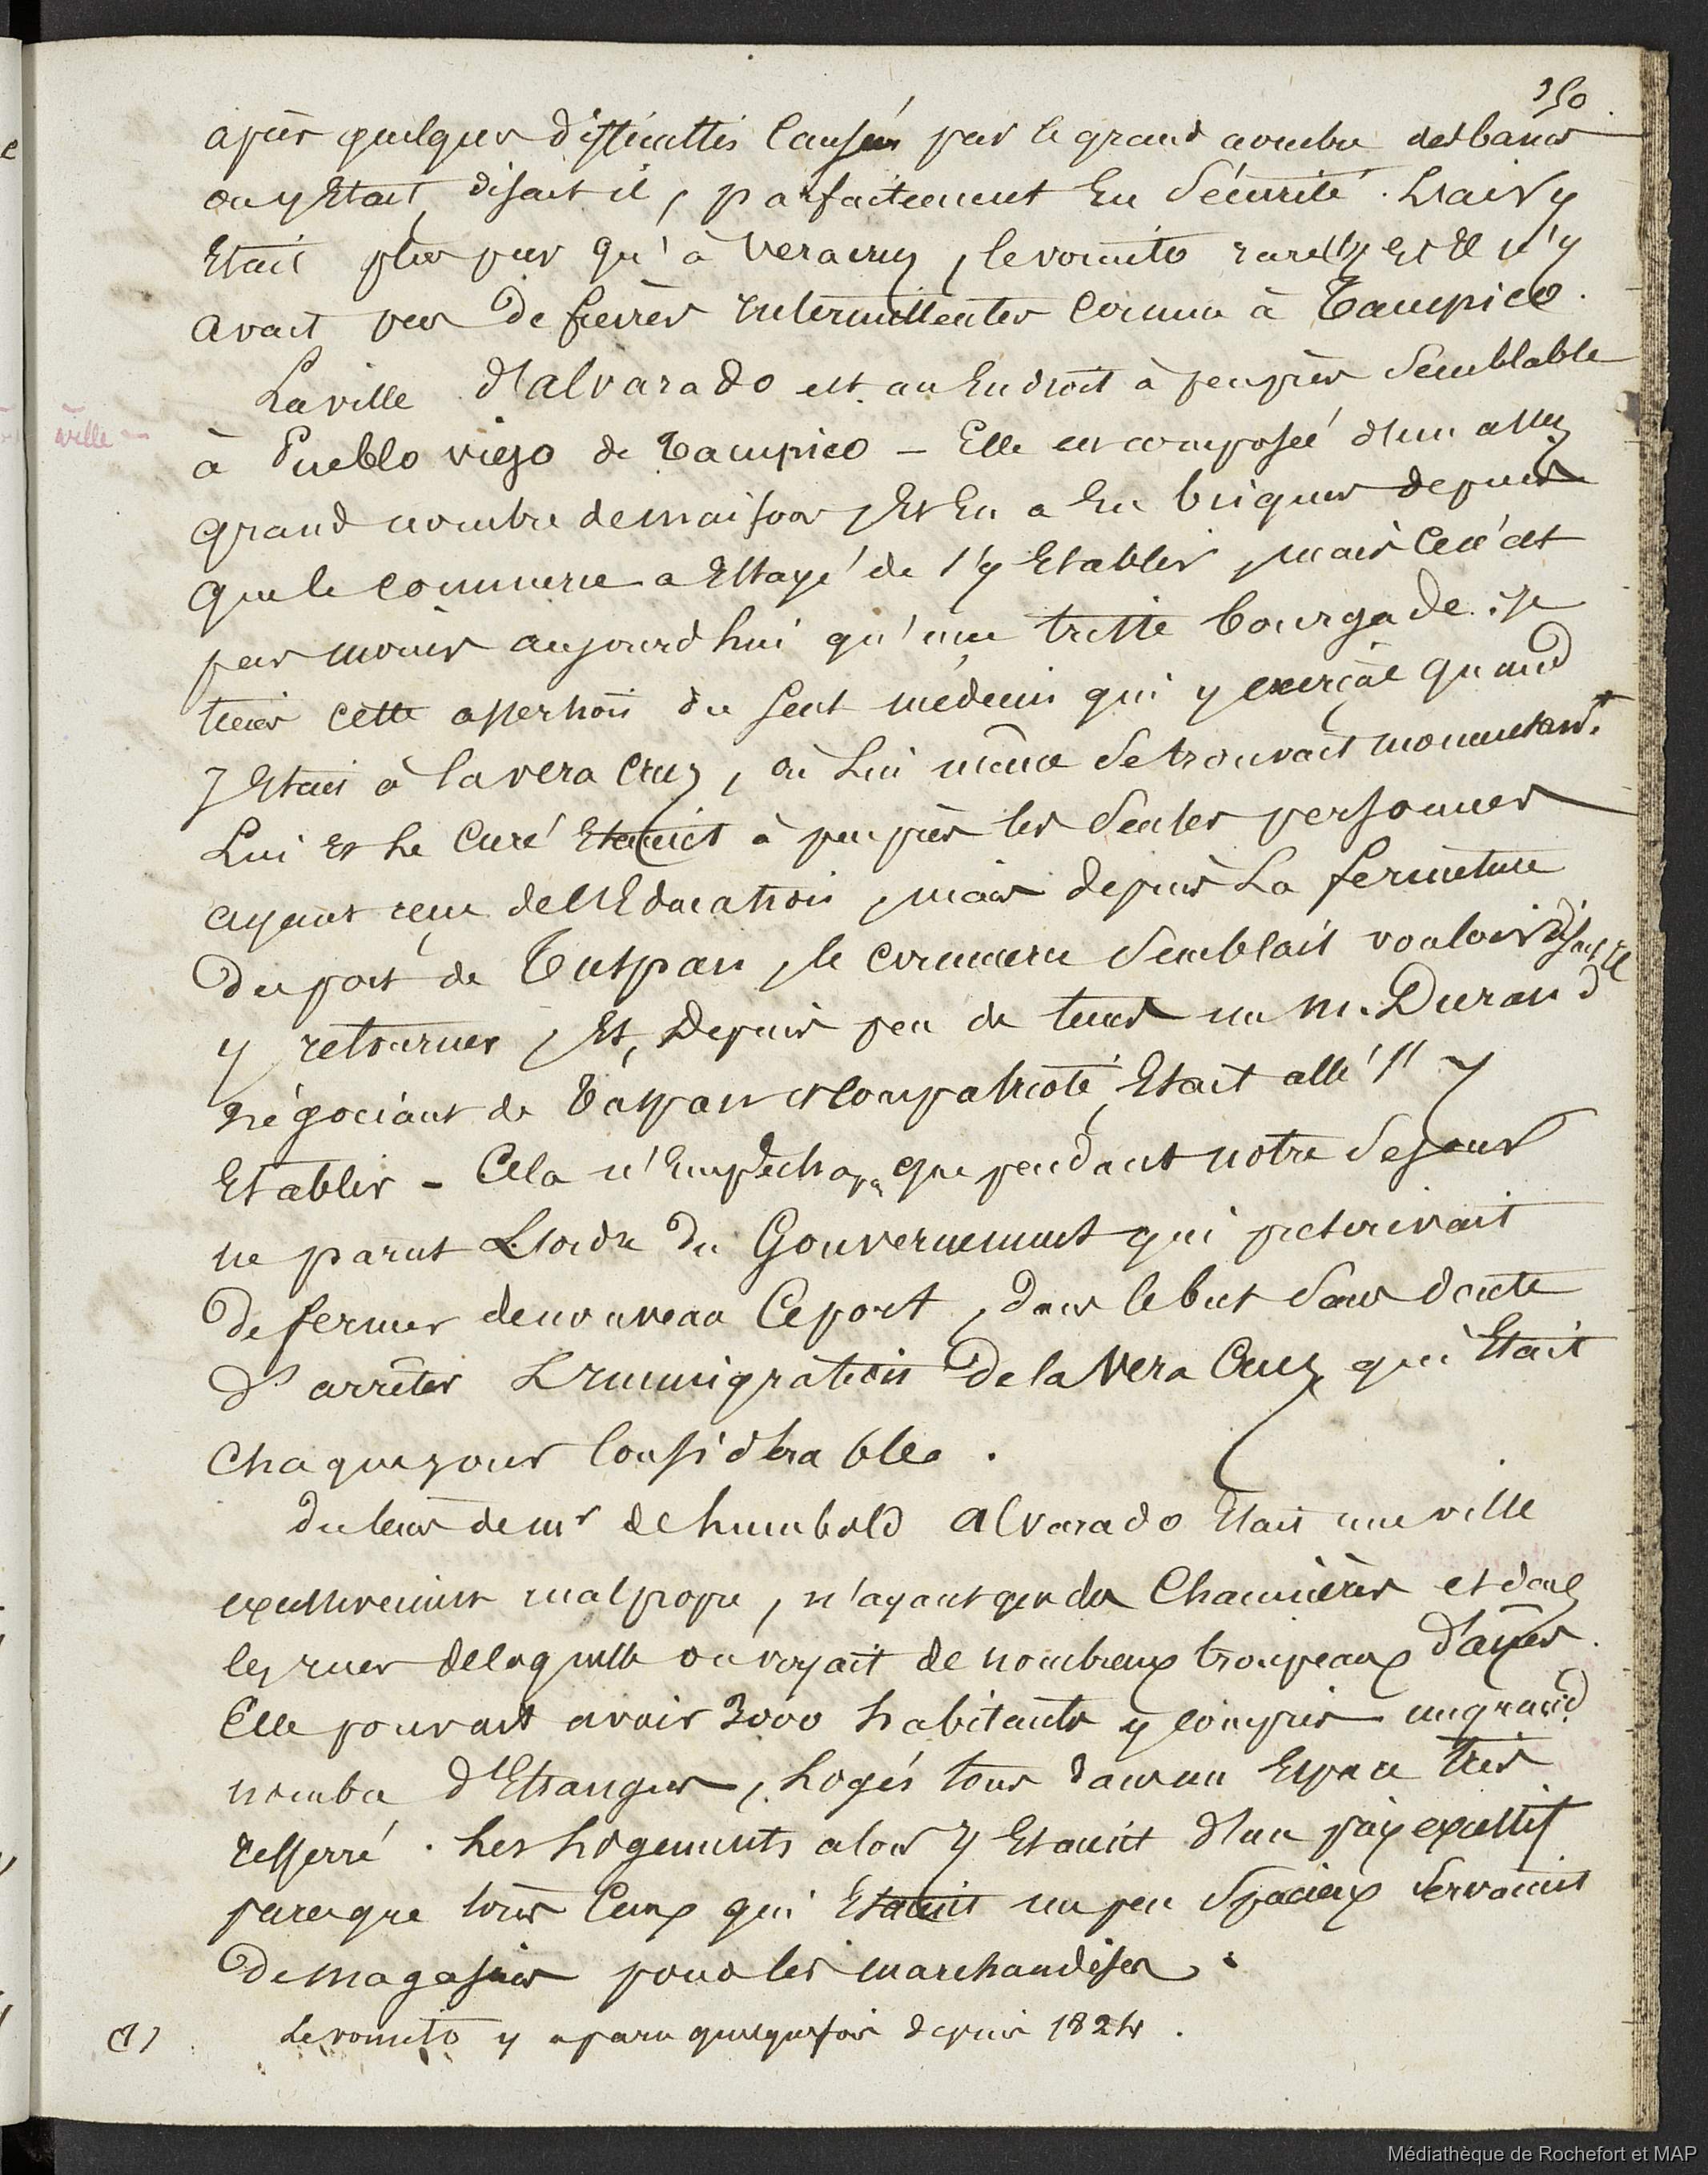 350
après quelques difficultés causées par le grand nombre des bancs
on y etait, disait il, parfaitement en sécurité. L'air y
etait plus pur qu'à Veracruz, le vomito rare (1) et il n'y
avait pas de fievres intermittentes comme à Tampico.
La ville d'alvarado est un endroit à peu près semblable
ville -
à Pueblo viejo de Tampico - Elle est composée d'un assez
grand nombre de maisons, et en a en briques depuis
que le commerce a essayé de s'y etablir, mais ce n'est
pas moins aujourd'hui qu'une triste bourgade. je
tiens cette assertion du seul médecin qui y exerçat quand
j'etais à la vera Cruz, où lui même se trouvait momentant.
Lui et le Curé etaient à peu près les seules personnes
ayant reçu de l'Education, mais depuis la fermeture
du port de Tuspan, le commerce semblait vouloir disait il
y retourner, et, depuis peu de tems un m. Durand
négociant de Tuspan et compatriote, etait allé s'y
etablir - Cela n'empêcha pas que pendant notre sejour
ne parut L'ordre du Gouvernement qui prescrivait
de fermer de nouveau ce port, dans le but sans doute
d'arrêter L'emmigration de la Vera Cruz qui etait
chaque jour considérable.
Du tems de mr de humbold alvarado etait une ville
excessivement malpropre, n'ayant que des chaumières et dans
les rues de laquelle on voyait de nombreux troupeaux d'anes.
Elle pouvait avoir 3000 habitants y compris un grand
nombre d'Etrangers, logés tous dans un espace très
resserré. Les logements alors y etaient d'un prix excessif
parceque tous ceux qui etaient un peu spacieux servaient
de magasins pour les marchandises.
(1) Le vomito y a paru quelquefois depuis 1824.
Médiathèque de Rochefort et MAP